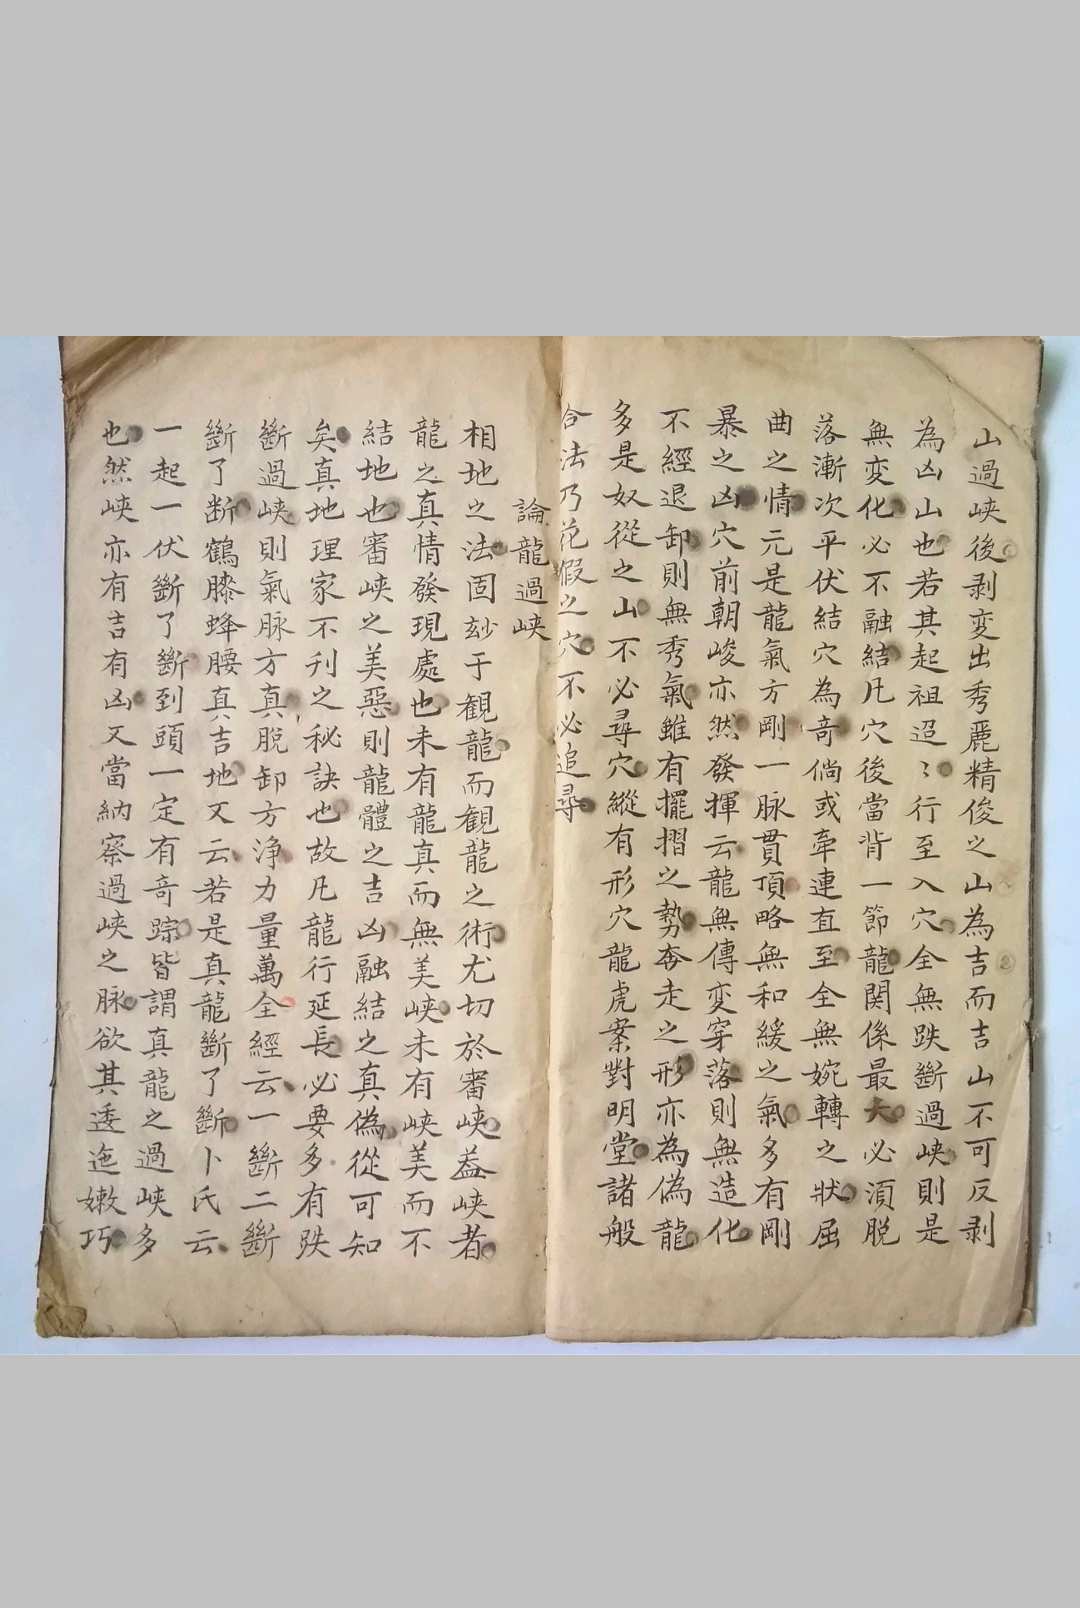 山過峡後剥变出秀麗精俊之山為吉而吉山不可反剥
為凶山也若其起祖迢〻行至入穴全無跌斷過峡則是
無变化必不融結凡穴後當背一節龍関係最大必湏脱
落漸次平伏結穴為竒倘或牽連直至全無婉轉之狀屈
曲之情元是龍氣方剛一脉貫頂略無和緩之氣多有剛
暴之凶穴前朝峻亦然發揮云龍無傳变穿落則無造化
不經退卸則無秀氣雖有擺摺之勢夲走之形亦為偽龍
多是奴從之山不必尋穴縱有形穴龍虎案對明堂諸般
合法乃花假之穴不必追尋
論龍過峡
相地之法固玅于観龍而観龍之術尤切於審峡葢峡者
龍之真情發現處也未有龍真而無美峡未有峡美而不
結地也審峡之美惡則龍體之吉凶融結之真偽從可知
矣真地理家不刋之秘訣也故凡龍行延長必要多有跌
斷過峡則氣脉方真脱卸方浄力量萬全經云一斷二斷
斷了断鶴膝蜂腰真吉地又云若是真龍斷了斷卜氏云
一起一伏斷了斷到頭一定有竒踪皆謂真龍之過峡多
也然峡亦有吉有凶又當納察過峡之脉欲其逶迤嫩巧